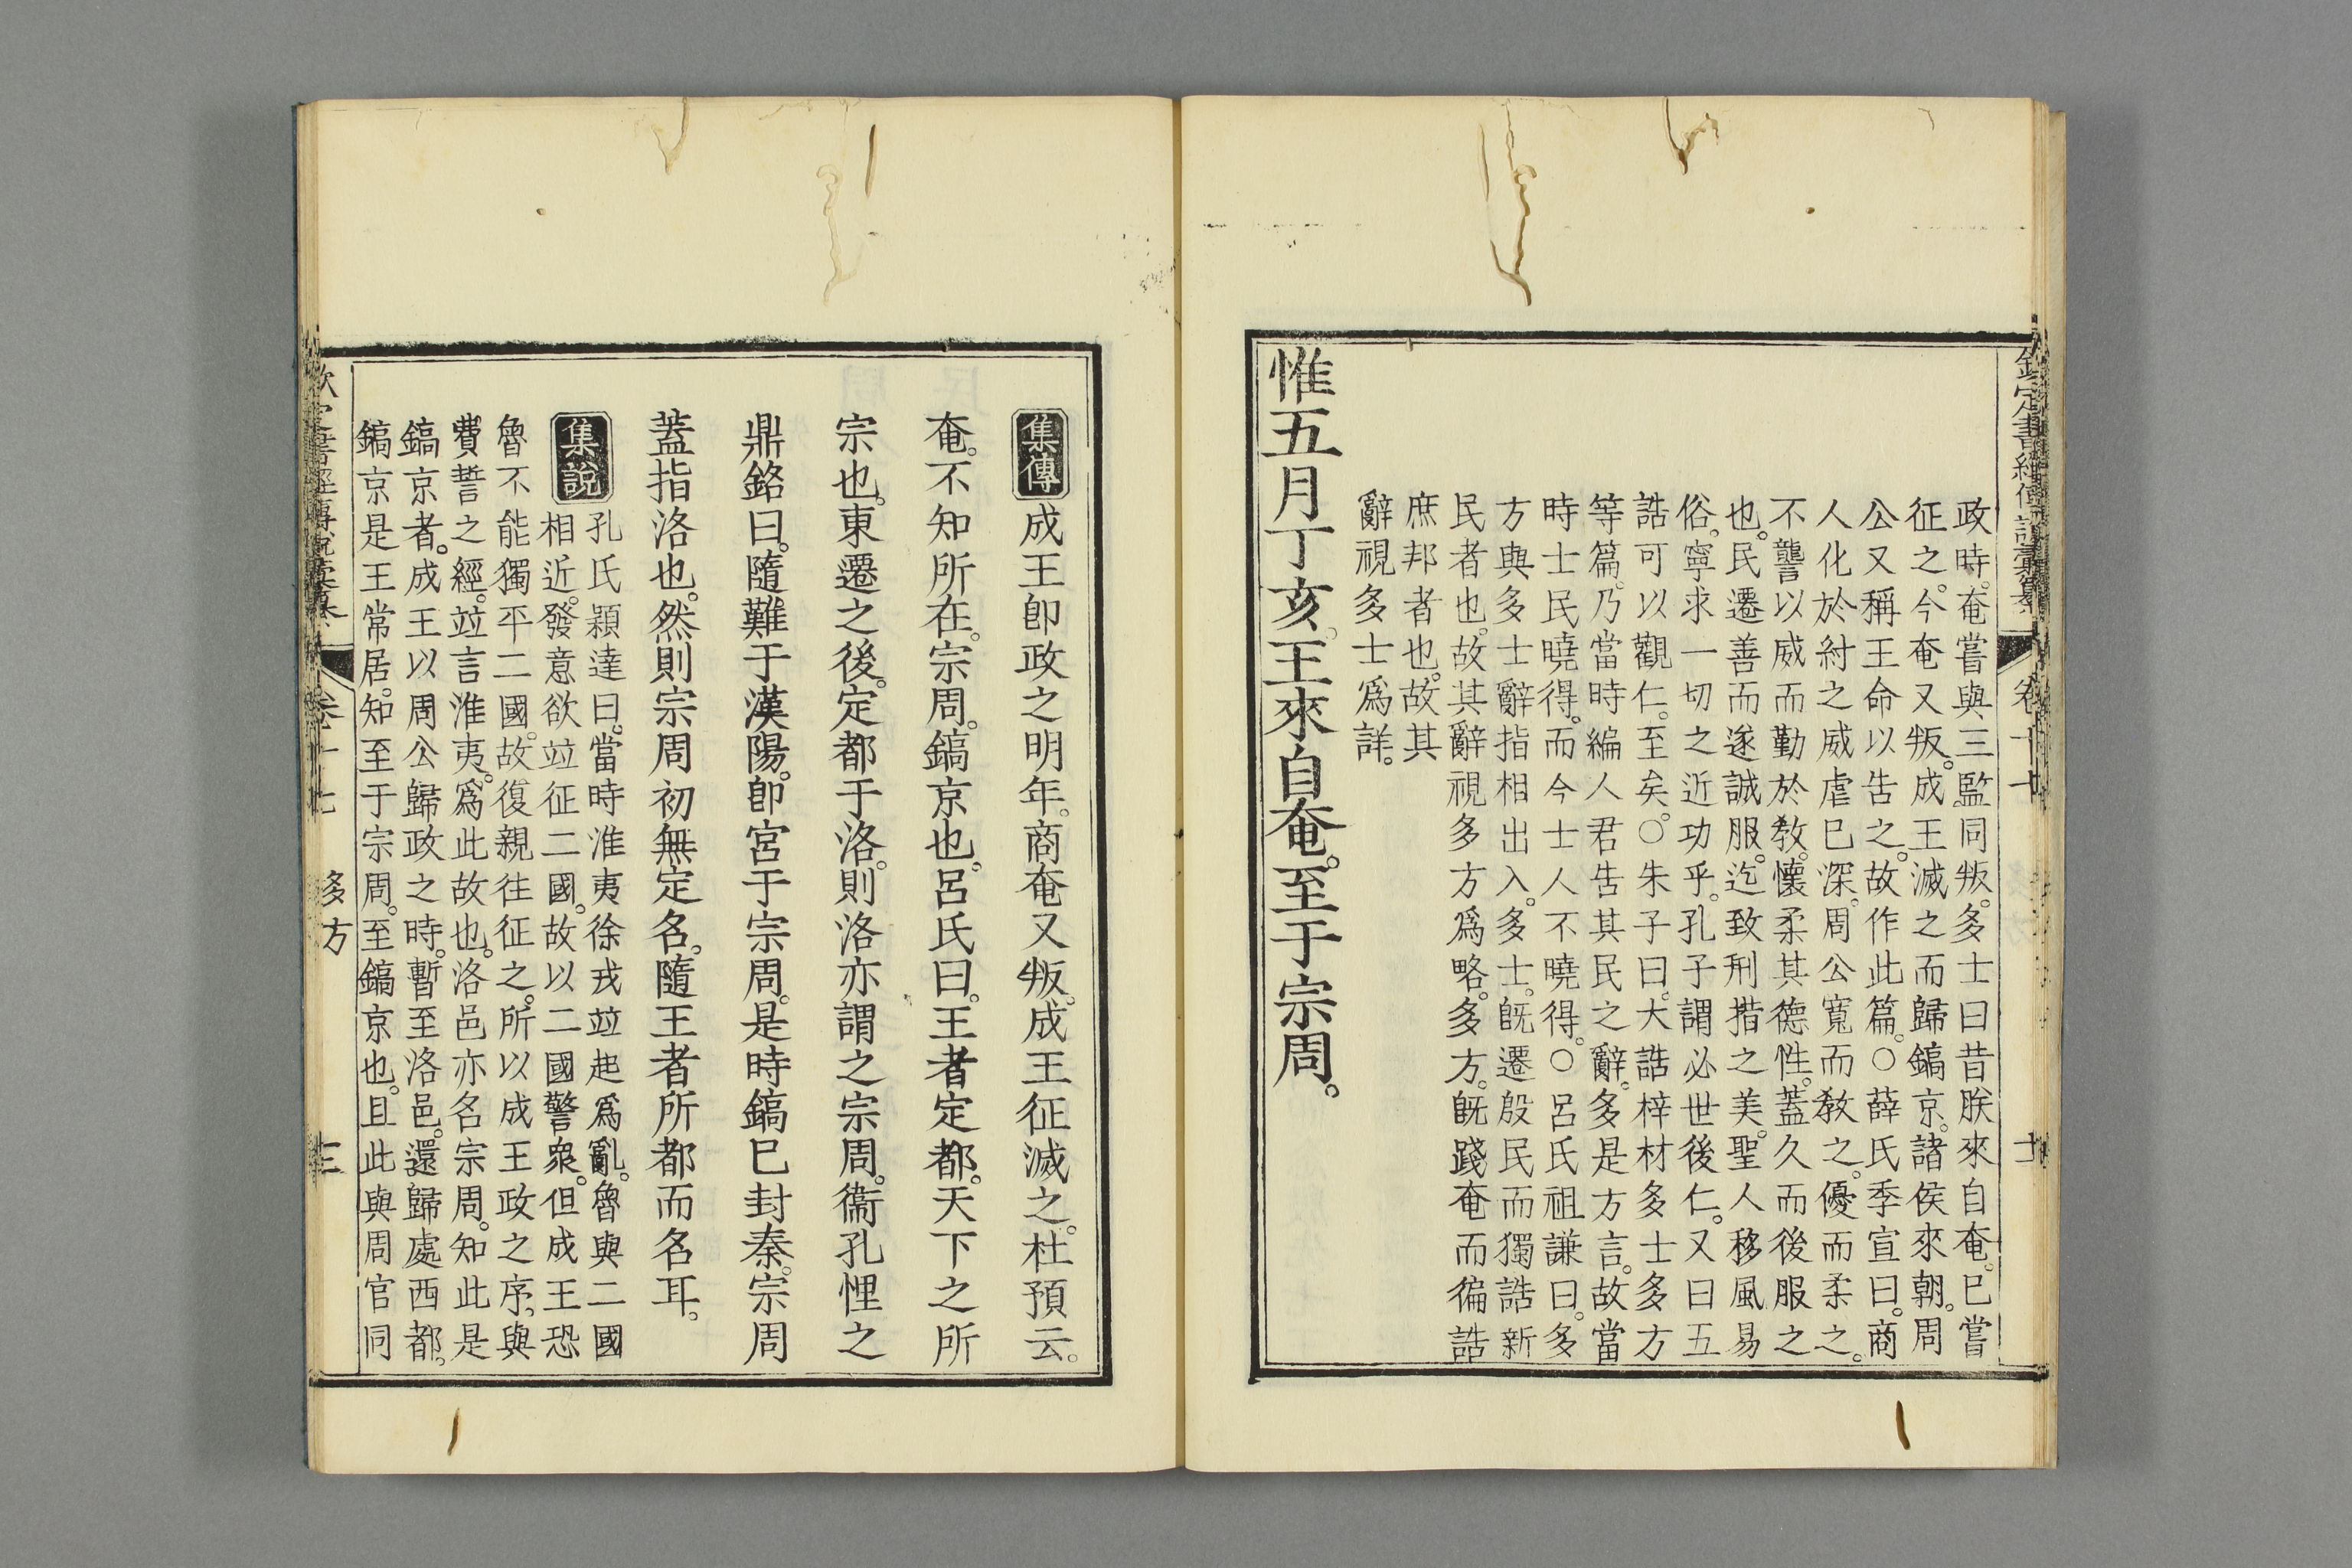 欽定書經傳說彙纂
卷十七
政時。奄嘗與三監。同叛。多士曰昔朕來自奄。已嘗
征之。今奄又叛。成王滅之而歸鎬京。諸侯來朝。周
公又稱王命以告之。故作此篇。○薛氏季宣曰。商
人化於紂之威虐已深。周公寬而敎之。優而柔之。
不讋以威而勤於敎。懷柔其德性。蓋久而後服之
也。民遷善而遂誠服。迄致刑措之美。聖人移風易
俗。寧求一切之近功乎。孔子謂必世後仁。又曰五
誥可以觀仁。至矣。○朱子曰。大誥梓材多士多方
等篇。乃當時編人君告其民之辭。多是方言。故當
時士民曉得。而今士人不曉得。○呂氏祖謙曰。多
方與多士辭指相出入。多士。旣遷殷民而獨誥新
民者也。故其辭視多方爲略。多方。旣踐奄而徧誥
庶邦者也。故其
辭視多士爲詳。
惟五月丁亥。王來自奄。至于宗周。
集傳 成王卽政之明年。商奄又叛。成王征滅之。杜預云。
奄。不知所在。宗周。鎬京也。呂氏曰。王者定都。天下之所
宗也。東遷之後。定都于洛。則洛亦謂之宗周。衞孔悝之
鼎銘曰。隨難于漢陽。卽宮于宗周。是時鎬已封秦。宗周
蓋指洛也。然則宗周初無定名。隨王者所都而名耳。
集說 孔氏穎達曰。當時淮夷徐戎竝起爲亂。魯與二國
相近。發意欲竝征二國。故以二國警衆。但成王恐
魯不能獨平二國。故復親往征之。所以成王政之序。與
費誓之經。竝言淮夷。爲此故也。洛邑亦名宗周。知此是
鎬京者。成王以周公歸政之時。暫至洛邑。還歸處西都。
鎬京是王常居。知至于宗周。至鎬京也。且此與周官同
欽定書經傳說彙纂
卷十七
多方